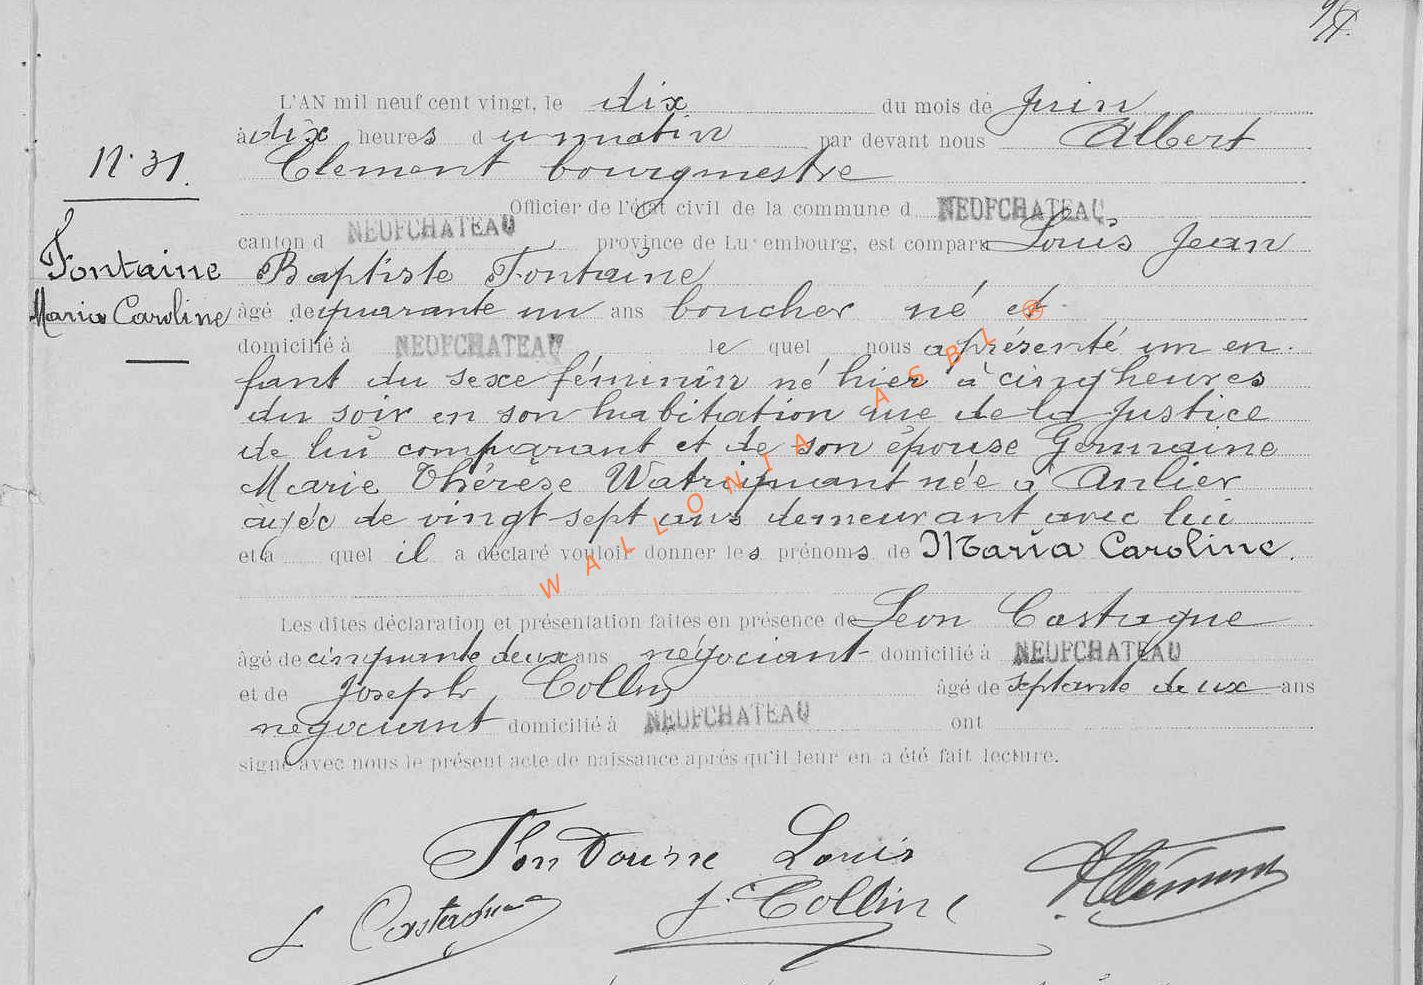 L'AN mil neuf cent vingt, le dix du mois de Juin
à dix heures du matin par devant nous Albert
Clement bourgmestre
N. 31.
Officier de l'état civil de la commune d NEUFCHATEAU
canton d NEUFCHATEAU province de Luxembourg, est comparu Louis Jean
Fontaine
Baptiste Fontaine
Maria Caroline
âgé de quarante un ans boucher né et
domicilié à NEUFCHATEAU le quel nous a présenté un en-
fant du sexe féminin né hier à cinq heures
du soir en son habitation rue de la Justice
de lui comparant et de son épouse Germaine
Marie Thérèse Watriquant née à Anlier
agée de vingt sept ans demeurant avec lui
et à quel il a déclaré vouloir donner les prénoms de Maria Caroline.
Les dites déclaration et présentation faites en présence de Leon Castagne
âgé de cinquante deux ans négociant domicilié à NEUFCHATEAU
et de Joseph Collin âgé de septante deux ans
négociant domicilié à NEUFCHATEAU ont
signé avec nous le présent acte de naissance après qu'il leur en a été fait lecture.
Fontaine Louis
L Castagne
J. Collin
A Clément
WALLONIA ASBL